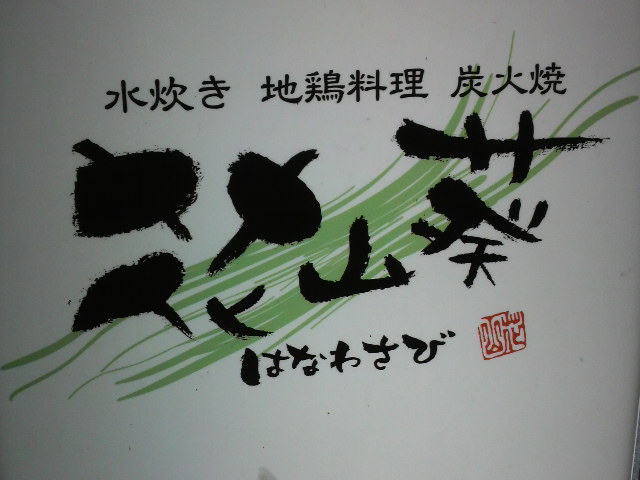 水炊き 地鶏料理 炭火焼
花山葵
はなわさび